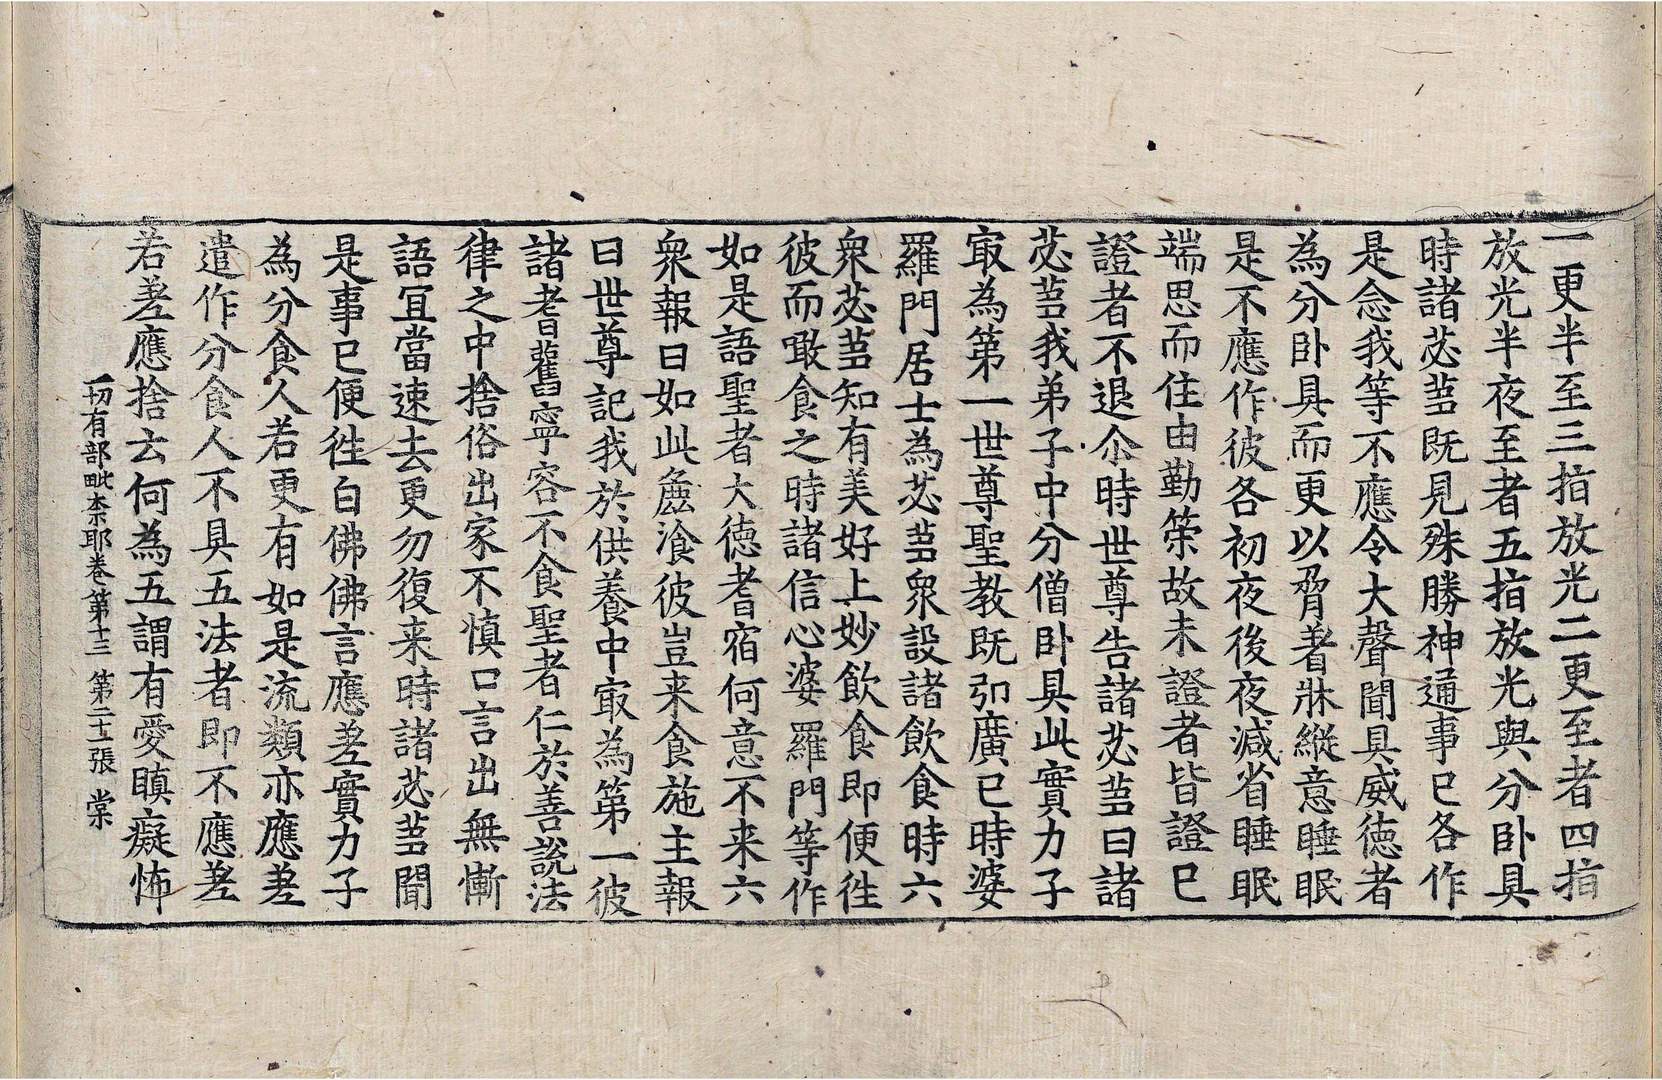 一更半至三指放光二更至者四指
放光半夜至者五指放光與分卧具
時諸苾芻既見殊勝神通事已各作
是念我等不應令大聲聞具威德者
為分卧具而更以脅著牀縱意睡眠
是不應作彼各初夜後夜減省睡眠
端思而住由勤策故未證者皆證已
證者不退尒時世尊告諸苾芻曰諸
苾芻我弟子中分僧卧具此實力子
㝡為第一世尊聖教既弘廣已時婆
羅門居士為苾芻衆設諸飲食時六
衆苾芻知有美好上妙飲食即便徃
彼而噉食之時諸信心婆羅門等作
如是語聖者大德耆宿何意不来六
衆報曰如此麁飡彼豈来食施主報
曰世尊記我於供養中㝡為第一彼
諸耆舊寧容不食聖者仁於善說法
律之中捨俗出家不慎口言出無慚
語宜當速去更勿復来時諸苾芻聞
是事已便徃白佛佛言應差實力子
為分食人若更有如是流類亦應差
遣作分食人不具五法者即不應差
若差應捨去何為五謂有愛瞋癡怖
一切有部毗奈耶卷第十三 第二十五張 棠